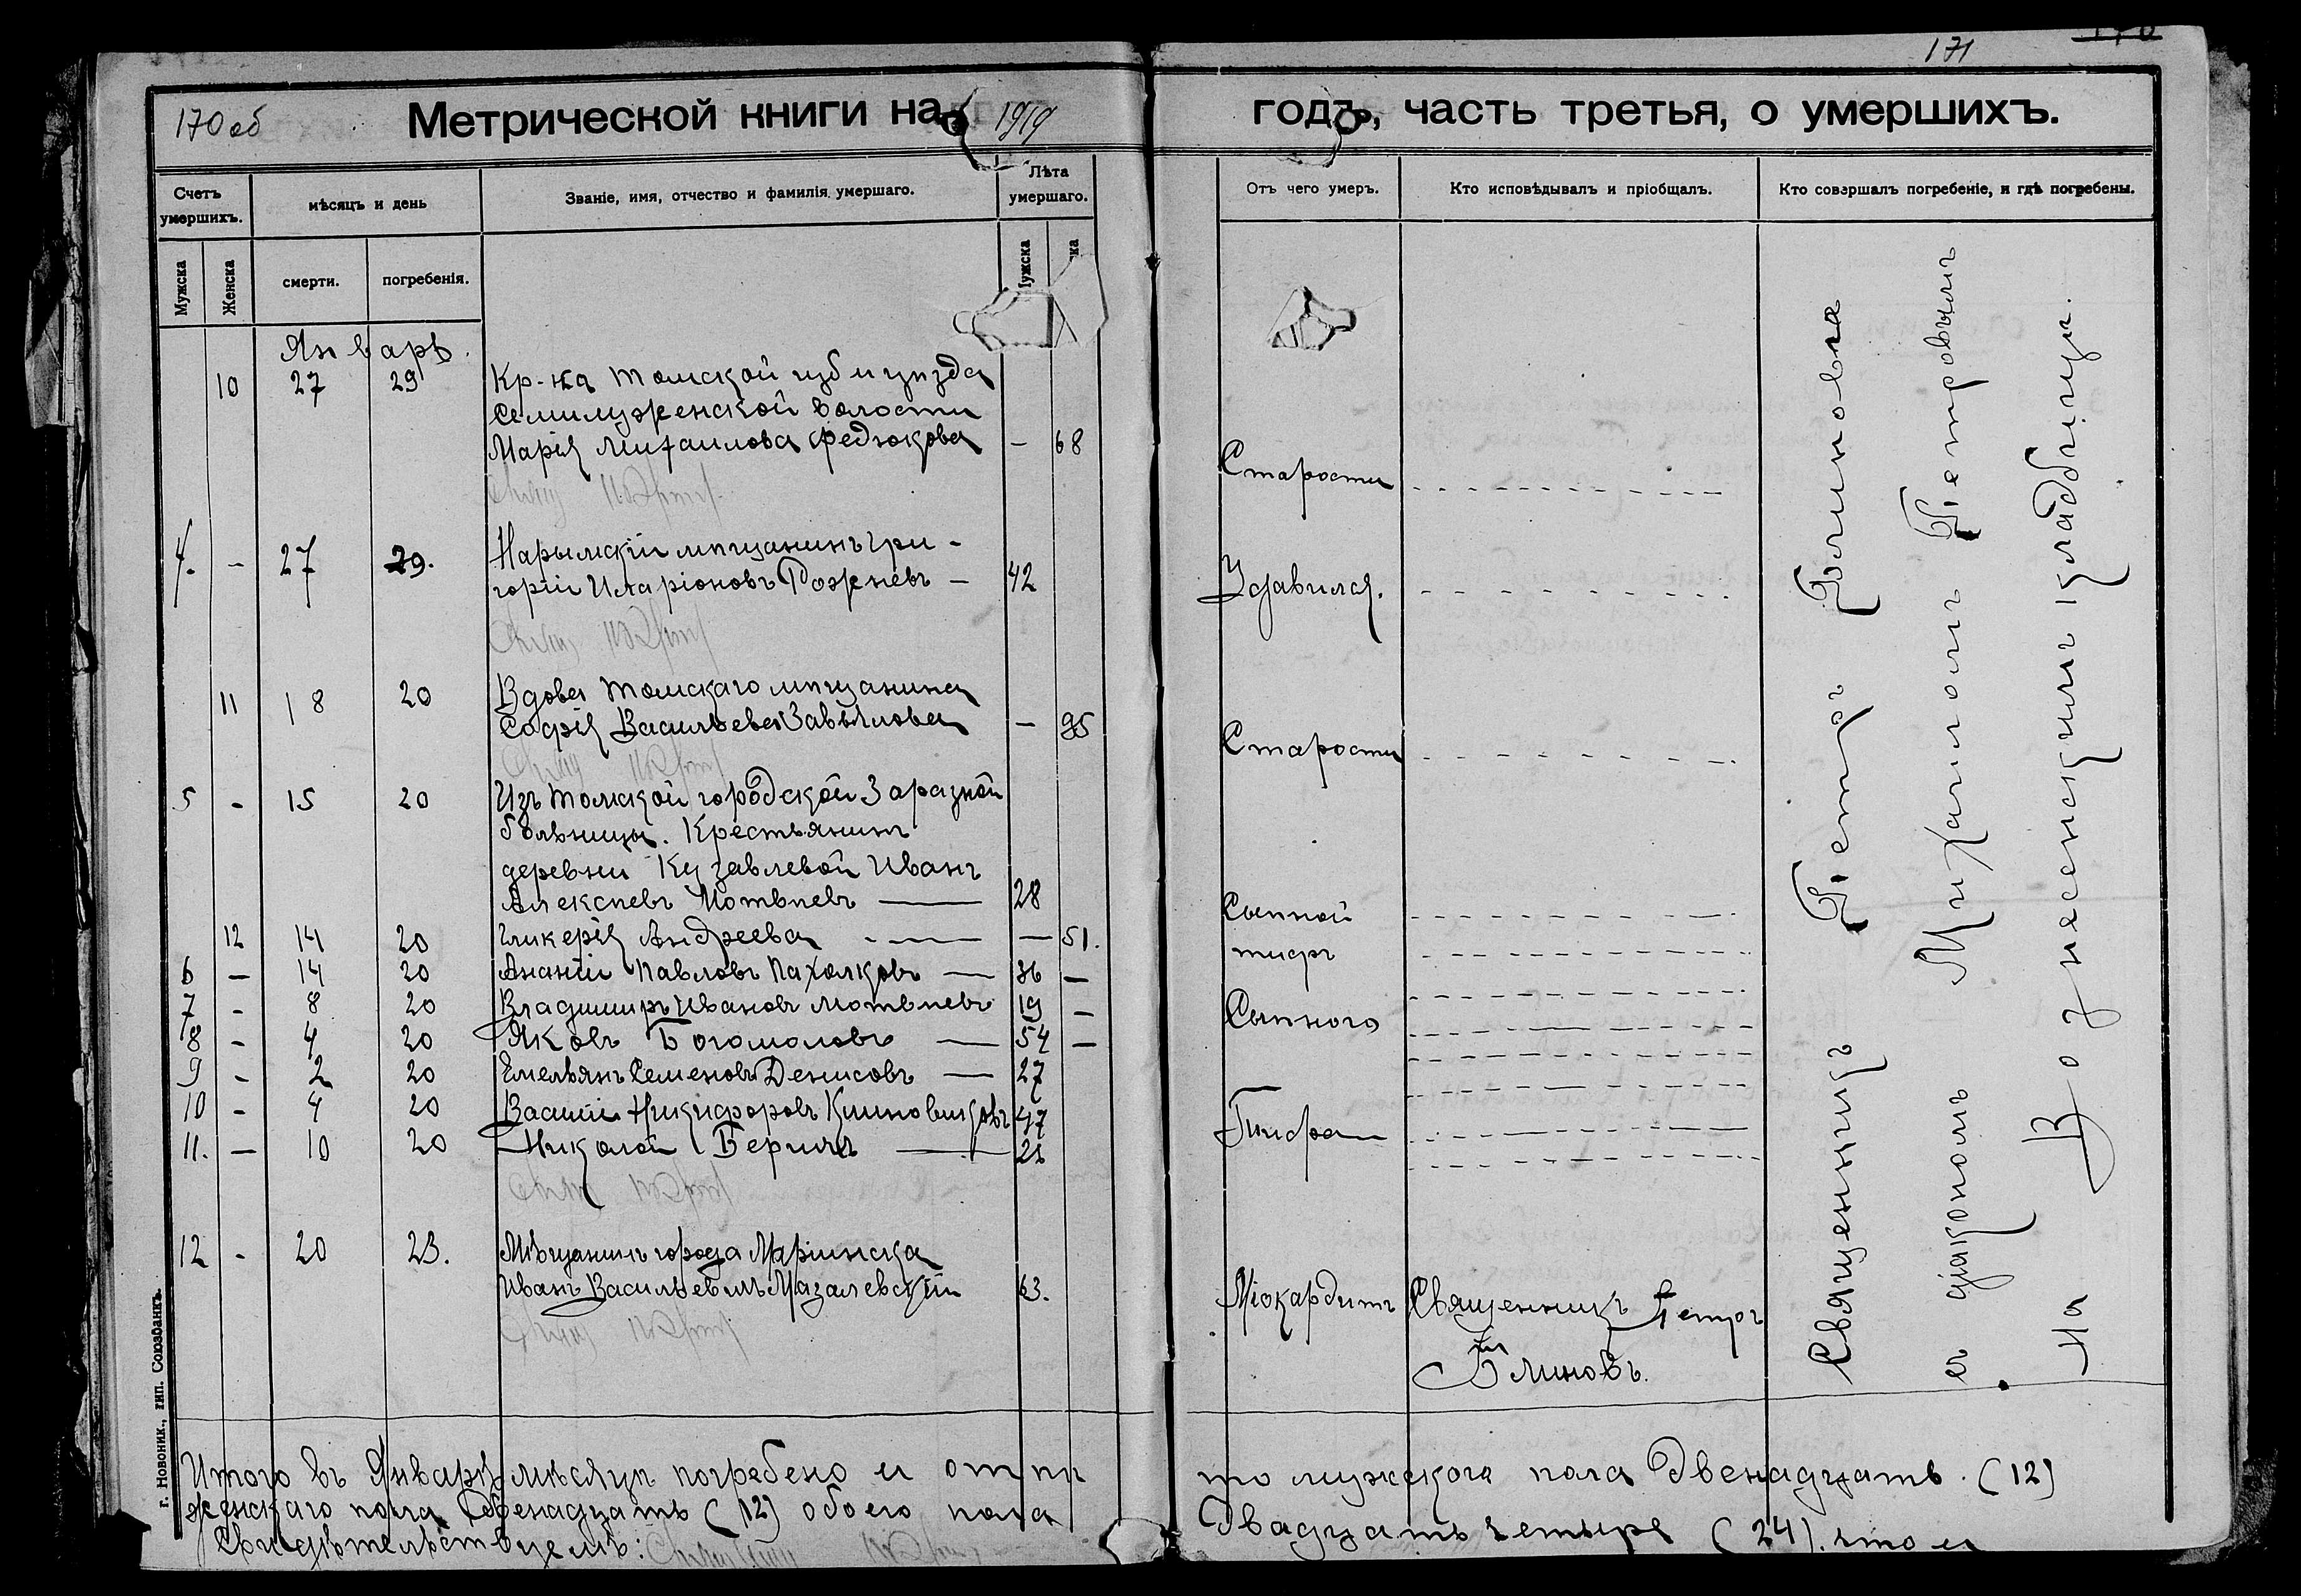 170 об
Метрической книги на 1919
Счетъ умершихъ.
мѣсяцъ и день
Званіе, имя, отчество и фамилія умершаго.
Лѣта умершаго.
Мужска
Женска
смерти.
погребенія.
Январь.
10 27 29 Кр-ка Томской губ и уѣзда
Семилуженской волости
Марія Михаилова Федюкова — 68
4. - 27 29. Нарымскій мѣщанинъ Гри-
горій Иларіоновъ Рожневъ — 42
11 18 20 Вдова Томскаго мѣщанина
Софія Васильева Завьялова — 95
5 - 15 20 Изъ Томской городской Заразной
больницы. Крестьянинъ
деревни Кузавлевой Иванъ
Алексѣевъ Мотвѣевъ — 28
12 14 20 Гликерія Андреева — — 51.
6 — 14 20 Ананій Павловъ Пахолковъ — 36 —
7 - 8 20 Владимиръ Ивановъ Мотвѣевъ 19 —
8 - 4 20 Яковъ Богомоловъ — 54 —
9 - 2 20 Емельянъ Семеновъ Денисовъ — 27
10 - 4 20 Василій Никифоровъ 47
11. — 10 20 Николай
12 - 20 23. Мѣщанинъ города Маріинска
Иванъ Васильевичъ Мазалевскій 63.
Итого въ Январѣ мѣсяцѣ погребено и отпѣ
женскаго пола Двенадцать (12) обоего пола
Свидѣтельствуемъ:
г. Новоник., тип. Союзбанкъ.
171
170
годъ, часть третья, о умершихъ.
Отъ чего умеръ.
Кто исповѣдывалъ и пріобщалъ.
Кто совершалъ погребеніе, и гдѣ погребены.
Старости
Удавился.
Старости
Сыпной
тифъ
Сыпного
Тифа
Міокардитъ Священникъ Петръ
Блиновъ.
Священникъ Петръ Блиновъ
съ діакономъ Михаиломъ Петровымъ
На Вознесенскимъ кладбищи.
то мужского пола Двенадцать. (12)
Двадцать четыре (24). что и